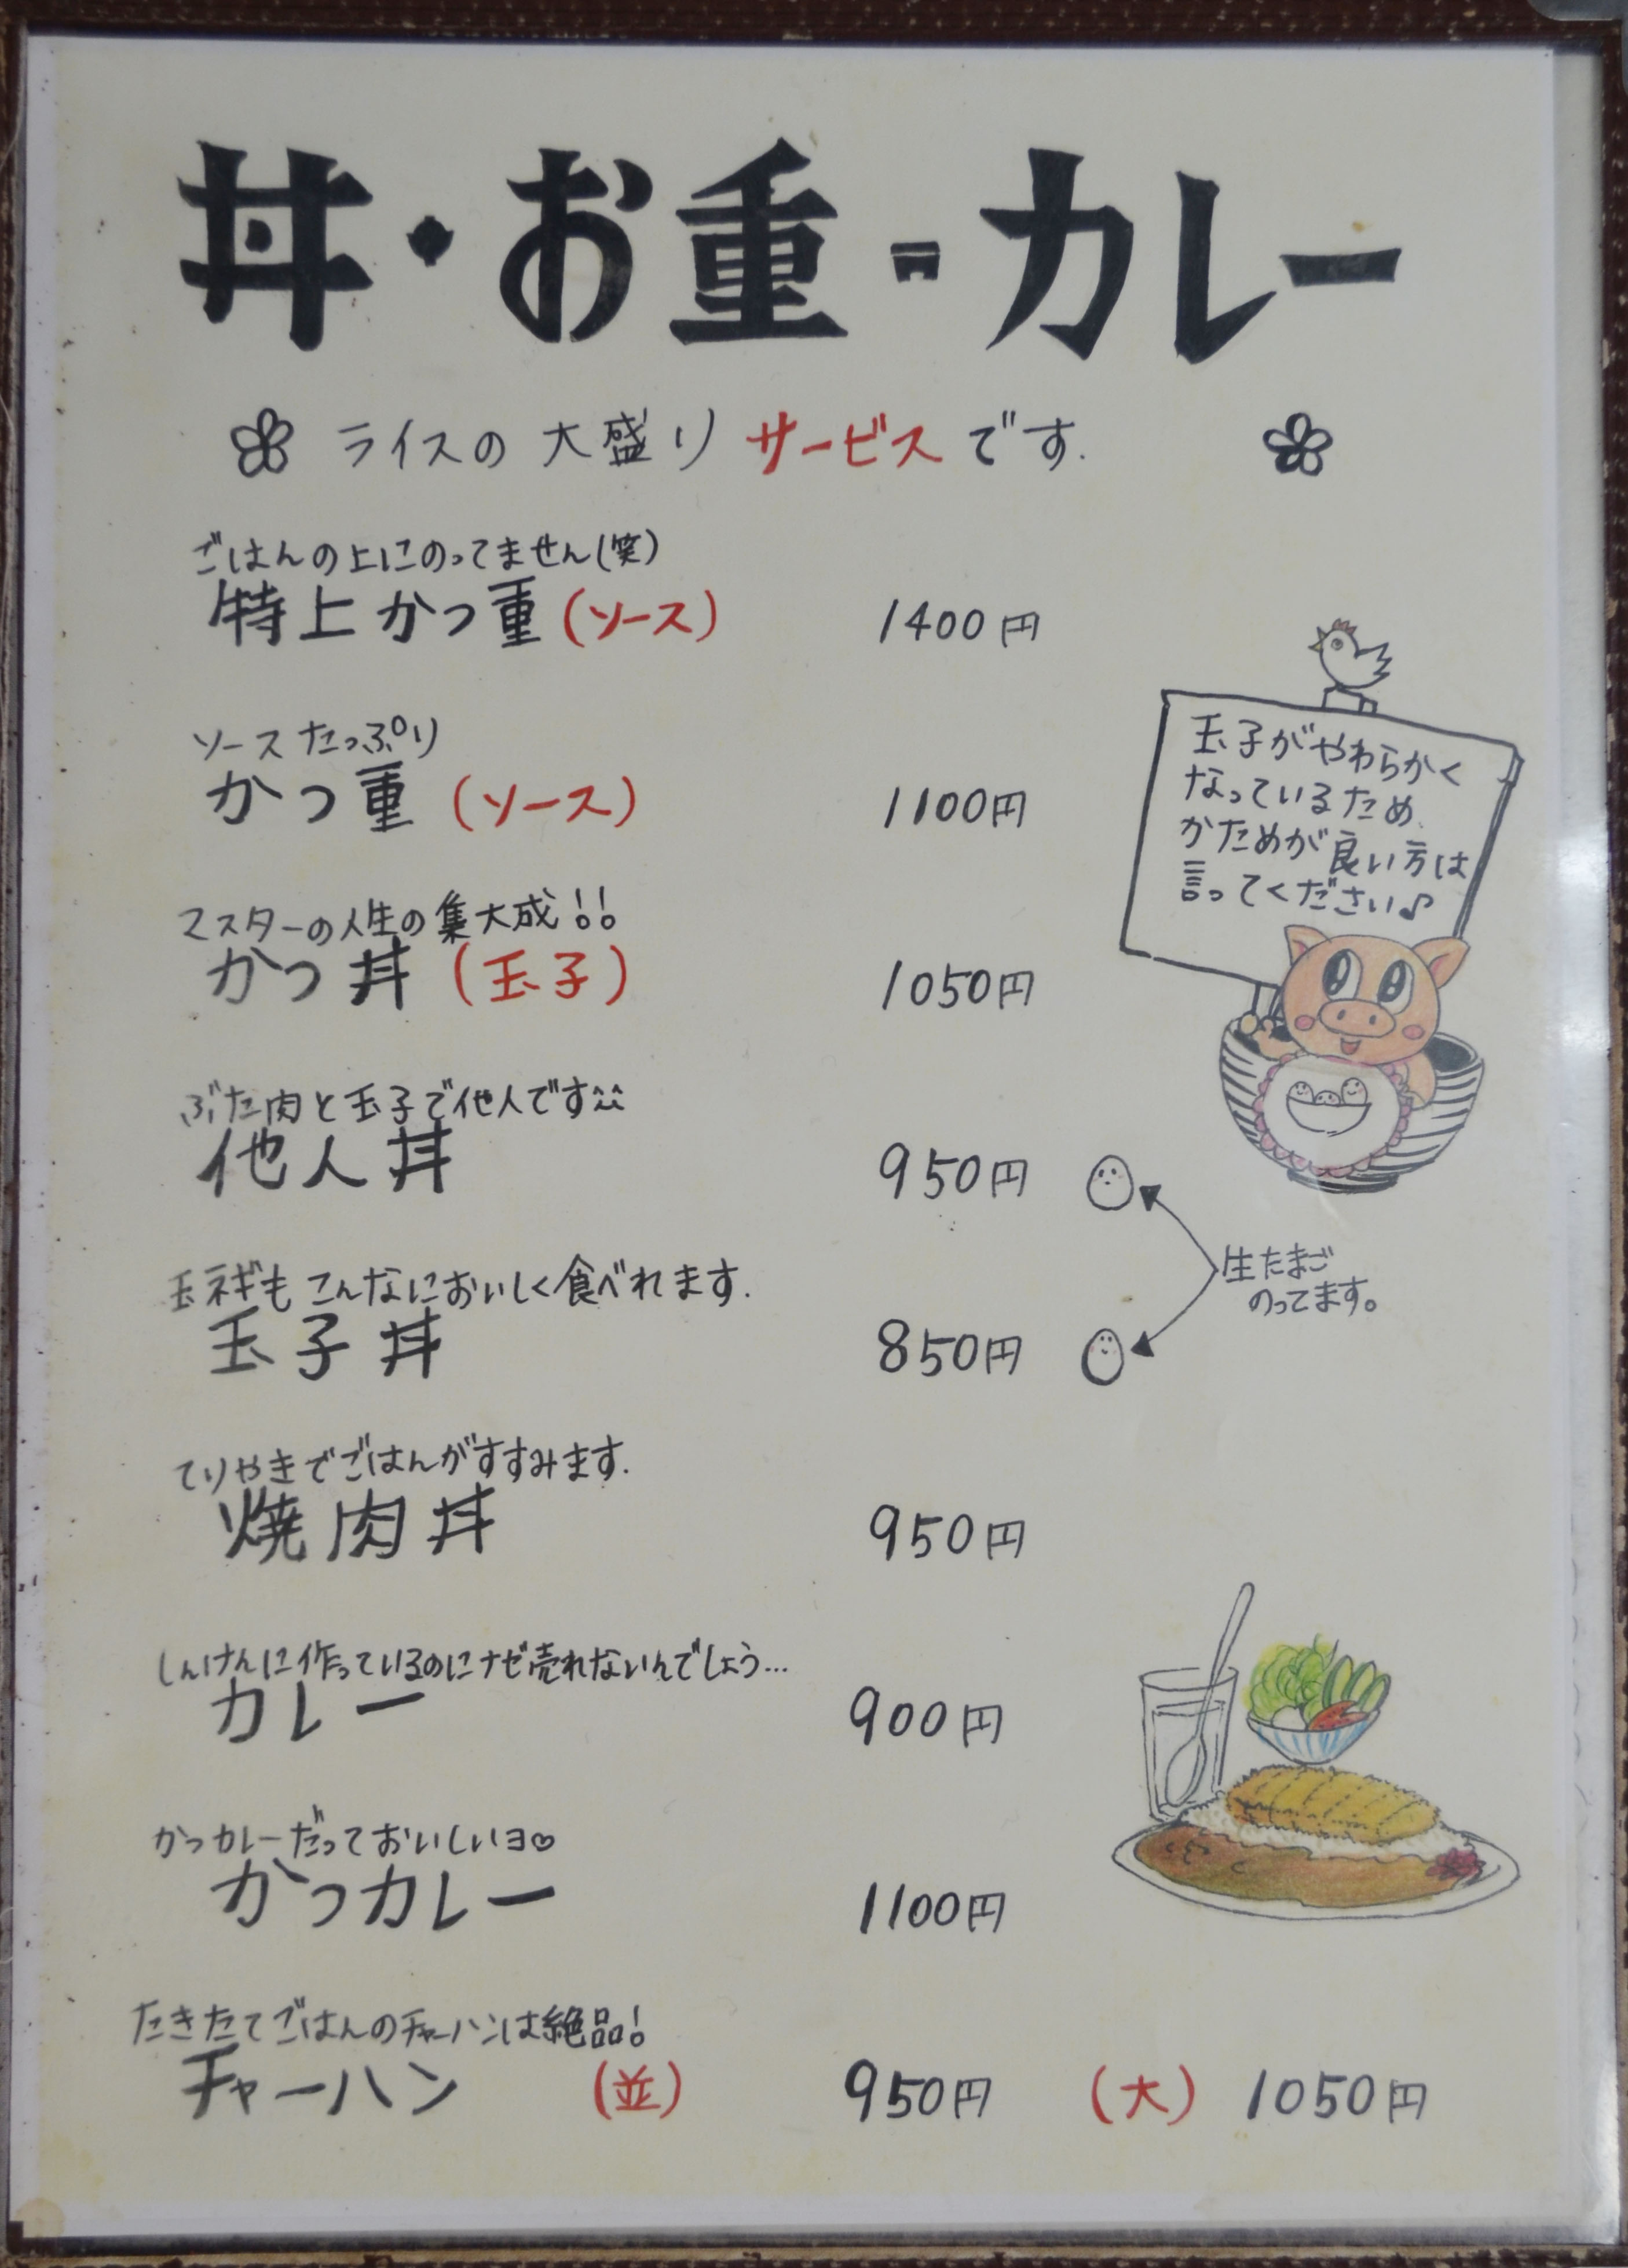 丼・お重・カレー
ライスの大盛りサービスです.
ごはんの上にのってません(笑)
特上かつ重(ソース) 1400円
ソースたっぷり
かつ重(ソース) 1100円
マスターの人生の集大成!!
かつ丼(玉子) 1050円
玉子がやわらかく
なっているため
かためが良い方は
言ってください♪
ぶた肉と玉子で他人です^^
他人丼 950円
生たまご
のってます。
玉ネギもこんなにおいしく食べれます.
玉子丼 850円
てりやきでごはんがすすみます.
焼肉丼 950円
しんけんに作っているのにナゼ売れないんでしょう...
カレー 900円
かつカレーだっておいしいヨ♡
かつカレー 1100円
たきたてごはんのチャーハンは絶品!
チャーハン (並) 950円 (大) 1050円